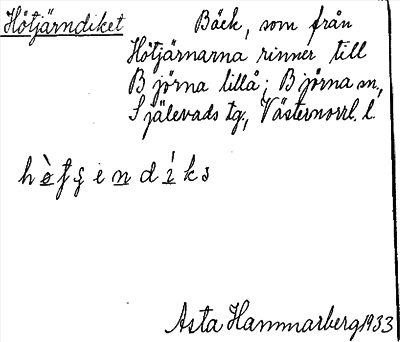 Hötjärndiket Bäck, som från
Hötjärnarna rinner till
Björna lillå; Björna sn,
Själevads tg., Västernorrl. l.
Asta Hammarberg 1933